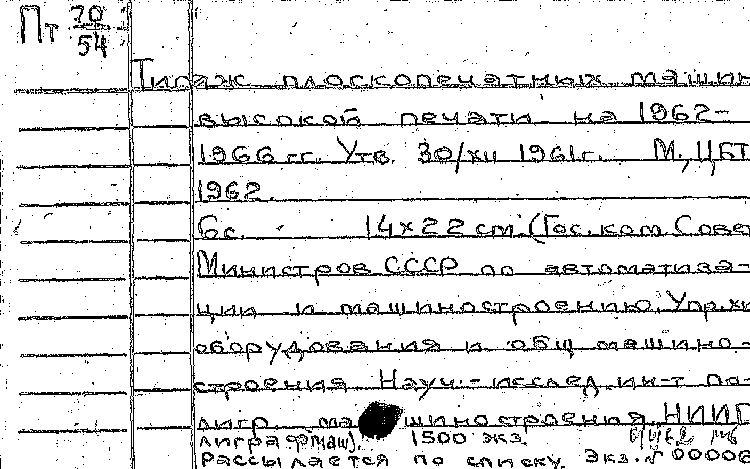 Пт 70/54
Типаж плоскопечатных машин
высокой печати на 1962-
1966 гг. Утв. 30/XII 1961г. М., ЦБТ
1962.
6с. 14×22 см (Гос. ком. Совет
Министров СССР по автоматиза-
ции и машиностроению. Упр. хи
оборудования и общ. машино-
строения. Науч.-исслед. ин-т по-
лигр. машиностроения. НИИП
лиграфмаш). 1500 экз.
Рассылается по списку. Экз. № 00006